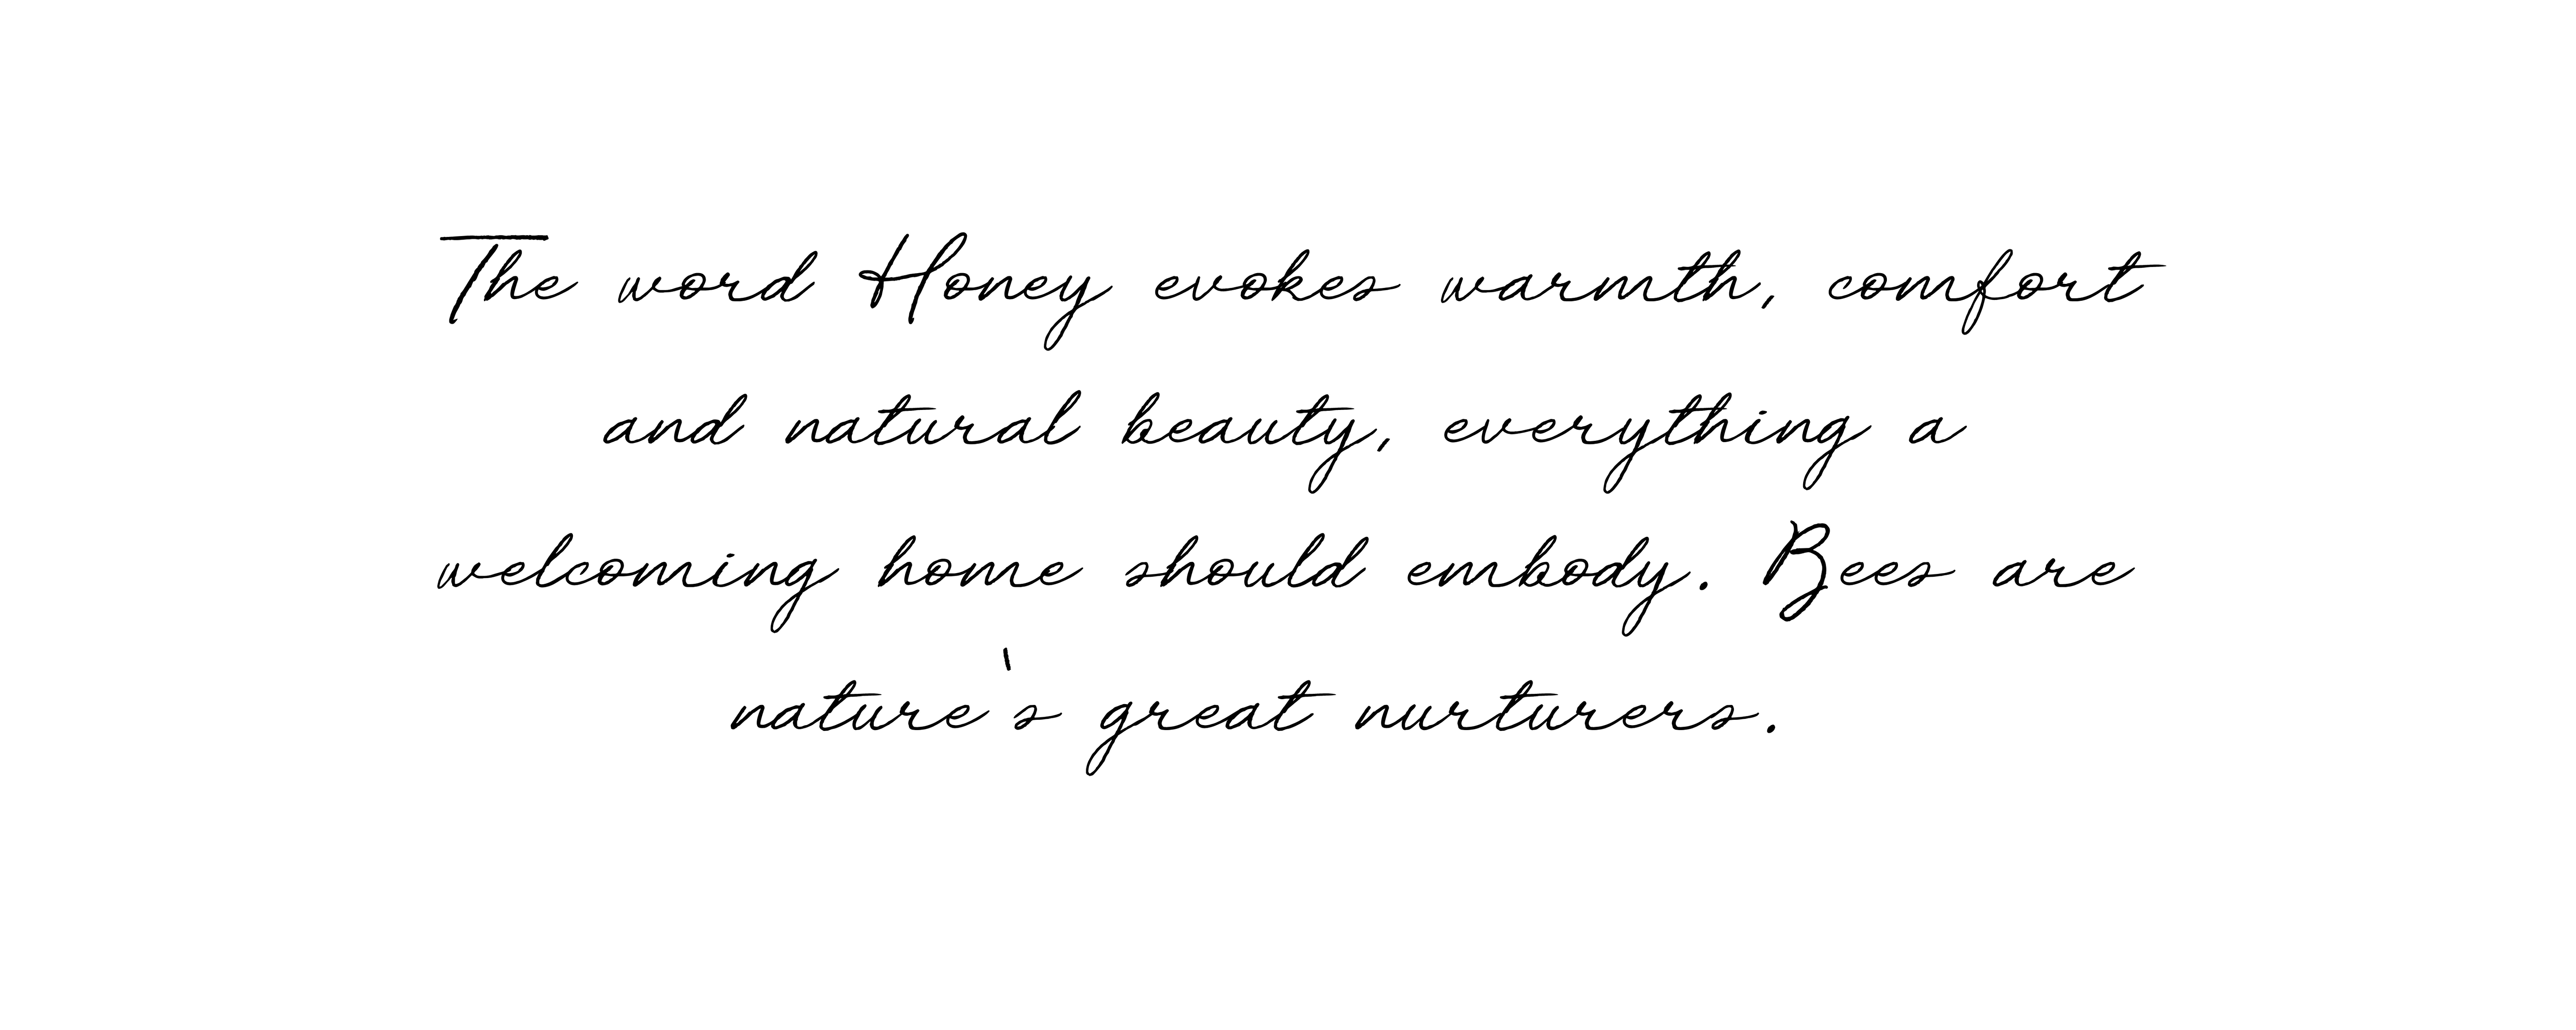 The word Honey evokes warmth, comfort
and natural beauty, everything a
welcoming home should embody. Bees are
nature's great nurturers.